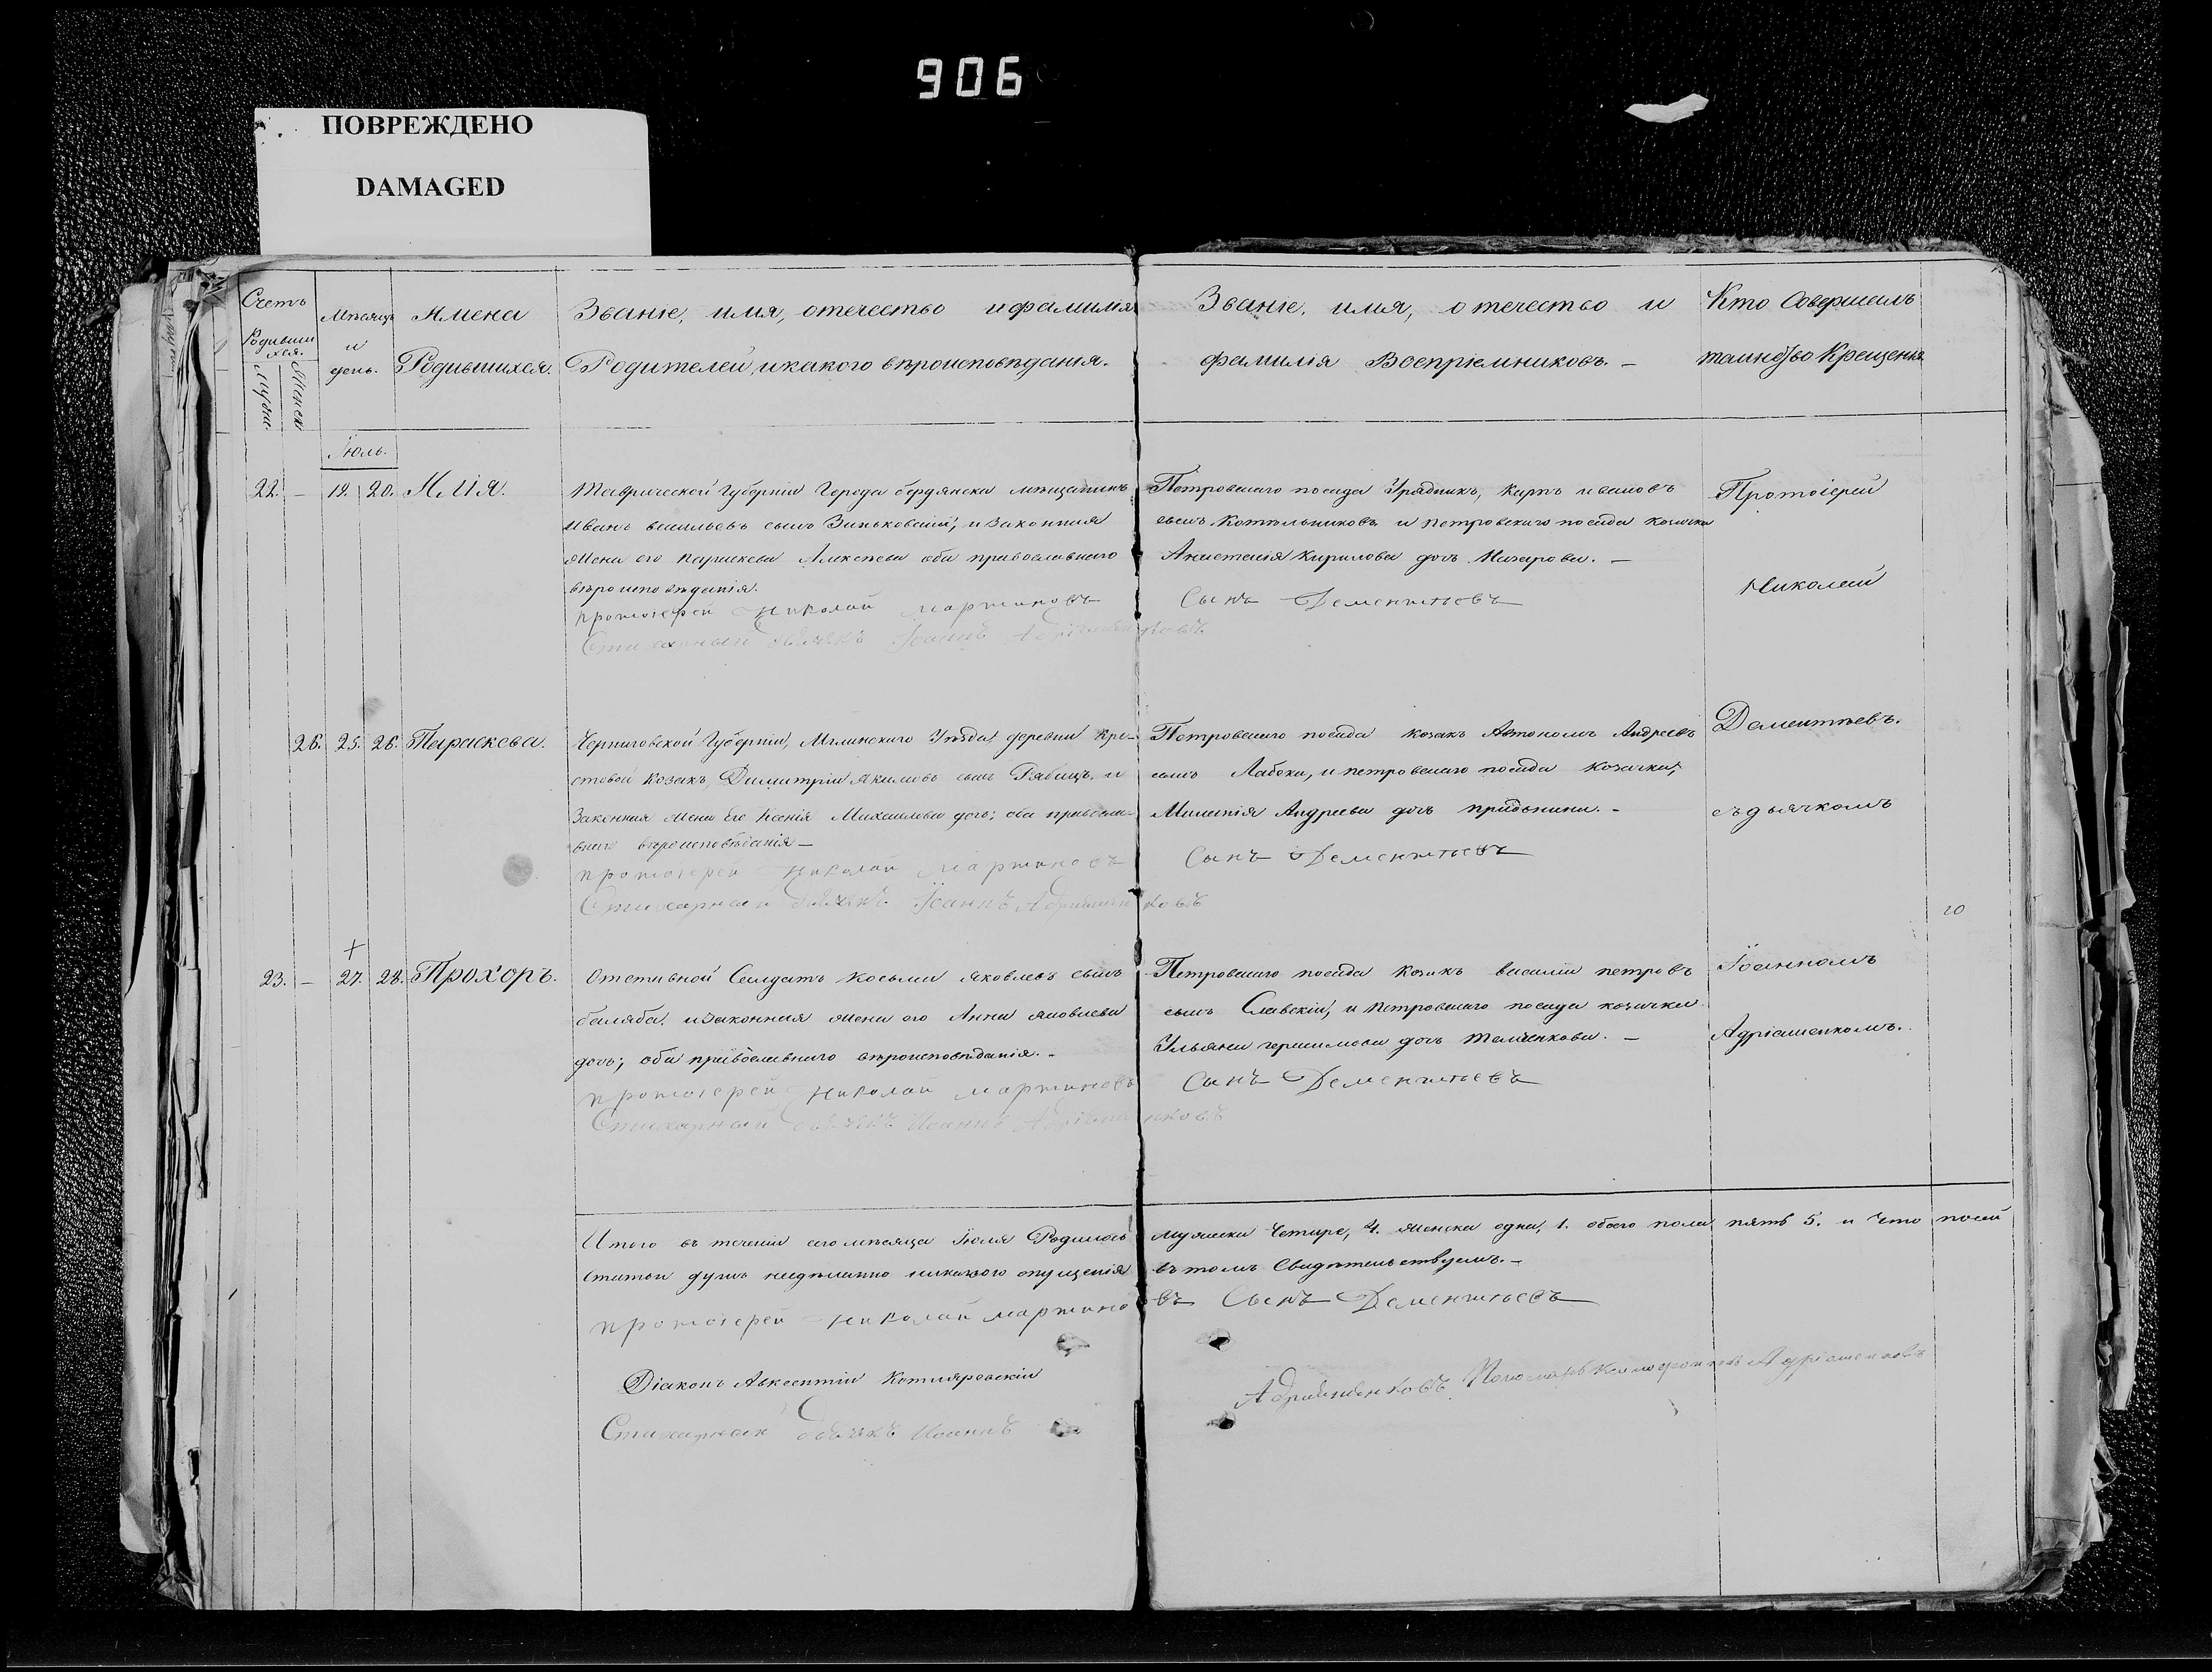 906
ПОВРЕЖДЕНО
DAMAGED
Счетъ Родившихся.
Мужск. Женск.
Мѣсяцъ и день.
Имена Родившихся.
Званіе, имя, отечество и фамилія
Родителей, и какого вѣроисповѣданія.
Званіе, имя, отечество и
фамилія Воспріемниковъ. –
Кто Совершалъ
таинство Крещенія
Іюль.
22. – 19. 20. Илія.
Таврической Губерніи Города бердянска мѣщанинъ
Иванъ васильевъ сынъ Зиньковскій, и законная
жена его параскева Алексѣева оба православнаго
вѣроисповѣданія.
протоіерей Николай мартиновъ
Стихарный дьячекъ Іоаннъ Адріяшенковъ
Петровскаго посада Урядникъ, Карпъ ивановъ
сынъ Котельниковъ и петровскаго посада козачка
Анастасія Кирилова дочь Назарова. –
Сынъ Дементьевъ
Протоіерей
Николай
26. 25. 26. Параскева.
Черниговской Губерніи, Мглинскаго Уѣзда, деревни
козакъ, Димитрій Якимовъ сынъ и
Законная жена Его Ксенія Михаилова дочь; оба правосла-
внаго вѣроисповѣданія –
протоіерей Николай мартиновъ
Стихарный дьячекъ Іоаннъ Адріяшенковъ
Петровскаго посада козакъ Автономъ Андреевъ
сынъ и петровскаго посада козачка,
Андреева дочь –
Сынъ Дементьевъ
Дементьевъ.
съ дьячкомъ
20
23. – 27. 28. Прохоръ.
Отставной Солдатъ Косьма Яковлевъ сынъ
беляба, и законная жена его Анна Яковлева
дочь; оба православнаго вѣроисповѣданія. –
протоіерей Николай мартиновъ
Стихарный дьячекъ Иоаннъ Адріяшенковъ
Петровскаго посада Козакъ василій петровъ
сынъ Славскій, и петровскаго посада козачка
Ульяна герасимова дочь –
Сынъ Дементьевъ
Іоанномъ
Адріашенкомъ.
Итого въ теченіи сего мѣсяца Іюля Родилось мужеска Четыре, 4. женска одна, 1. обоего пола пять 5. и что посей
Статьи душъ никакого опущенія въ томъ Свидѣтельствуемъ. –
протоіерей Николай мартиновъ Сынъ Дементьевъ
Діаконъ Авксентій Котляровскій
Стихарный дьячекъ Иоаннъ Адріяшенковъ
Пономарь Адріашенковъ